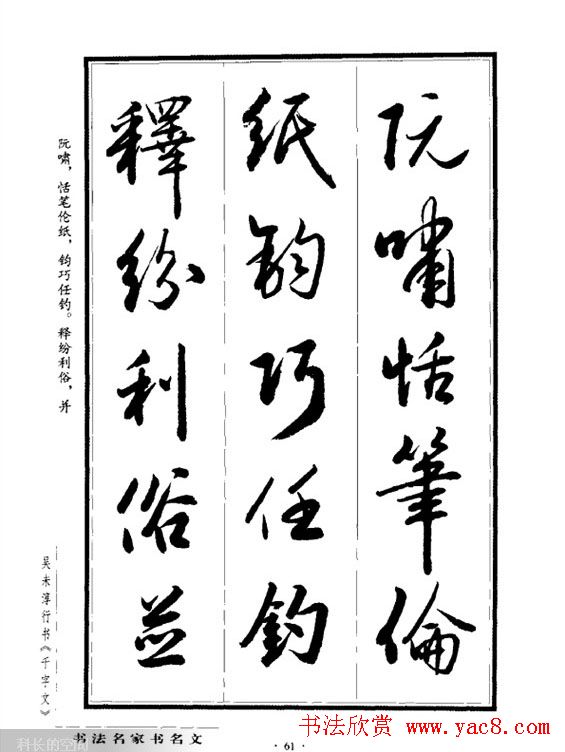 阮嘯恬筆倫
紙鈞巧任釣
釋紛利俗並
阮啸，恬笔伦纸，钧巧任钓。释纷利俗，并
吴未淳行书《千字文》
书法名家书名文
·61·
科长的空间
书法欣赏 www.yac8.com